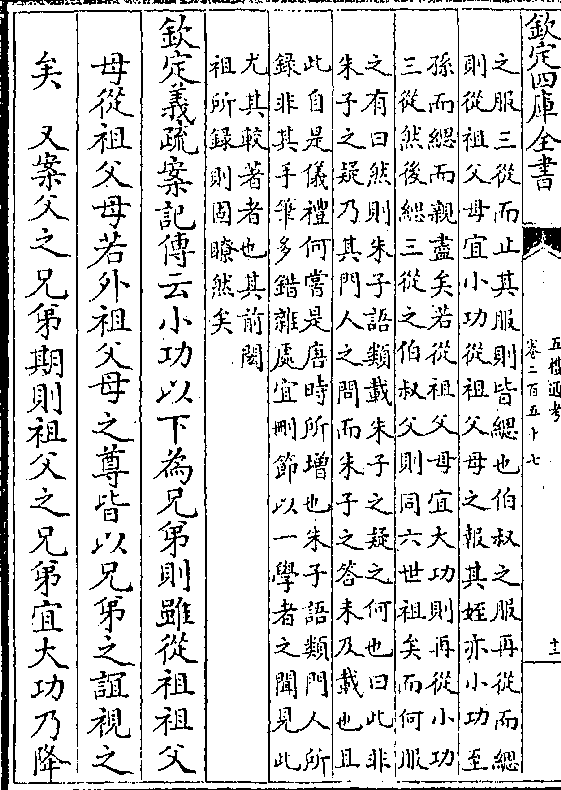 欽定四庫全書
五禮通考
卷二百五十七
十三
之服三從而止其服則皆緦也伯叔之服再從而緦
則從祖父母宜小功從祖父母之報其姪亦小功至
孫而緦而親盡矣若從祖父母宜大功則再從小功
三從然後緦三從之伯叔父則同六世祖矣而何服
之有曰然則朱子語類載朱子之疑之何也曰此非
朱子之疑乃其門人之問而朱子之答未及載也且
此自是儀禮何嘗是唐時所增也朱子語類門人所
錄非其手筆多錯雜處宜刪節以一學者之聞見此
尤其較著者也其前閎
祖所錄則固瞭然矣
欽定義疏案記傳云小功以下為兄弟則雖從祖祖父
母從祖父母若外祖父母之尊皆以兄弟之誼視之
矣 又案父之兄弟期則祖父之兄弟宜大功乃降